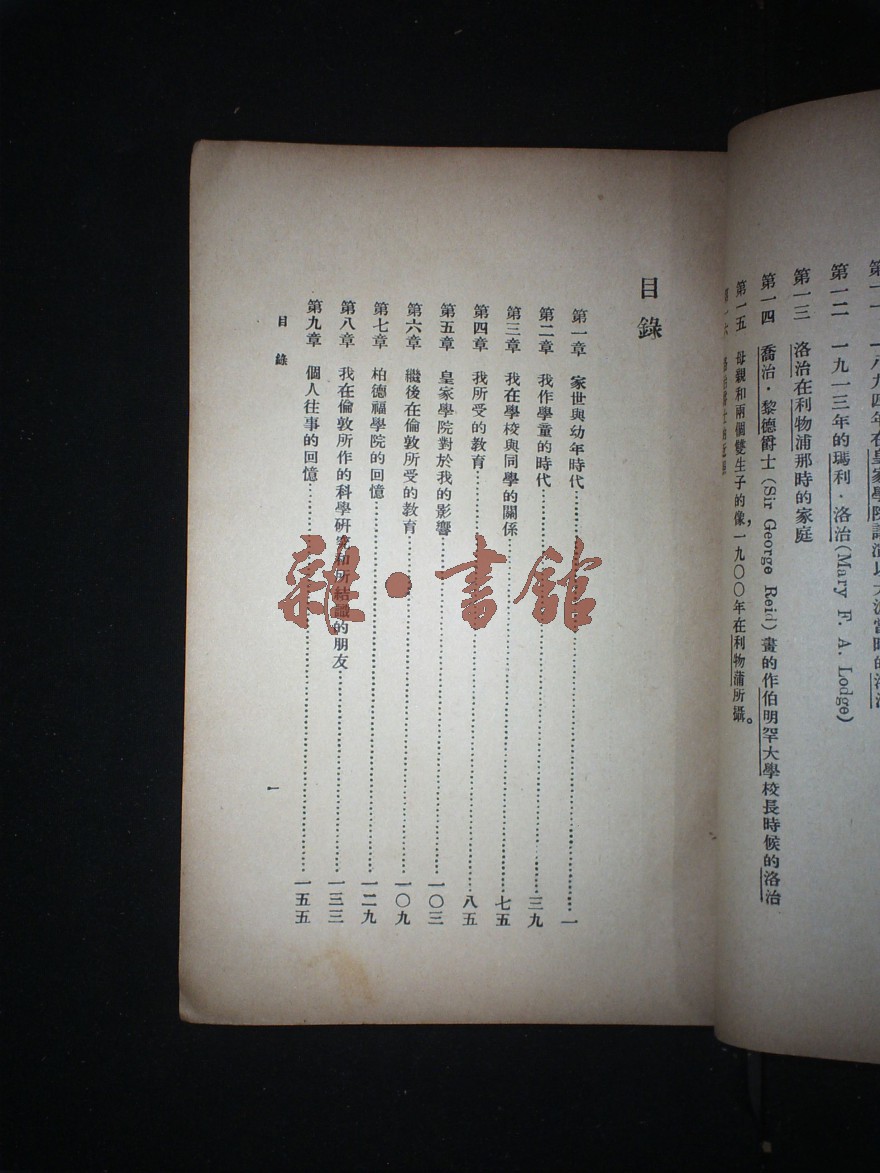 第一二　一九一三年的瑪利·洛治(Mary F. A. Lodge)
第一三　洛治在利物浦那時的家庭
第一四　喬治·黎德爵士(Sir George Reid)畫的作伯明罕大學校長時候的洛治
第一五　母親和兩個雙生子的像，一九〇〇年在利物蒲所攝。
目錄
第一章　家世與幼年時代……一
第二章　我作學童的時代……三九
第三章　我在學校與同學的關係……七五
第四章　我所受的教育……八五
第五章　皇家學院對於我的影響……一〇三
第六章　繼後在倫敦所受的教育……一〇九
第七章　柏德福學院的回憶……一二九
第八章　我在倫敦所作的科學研究和所結識的朋友……一三三
第九章　個人往事的回憶……一五五
目錄
一
雜·書館